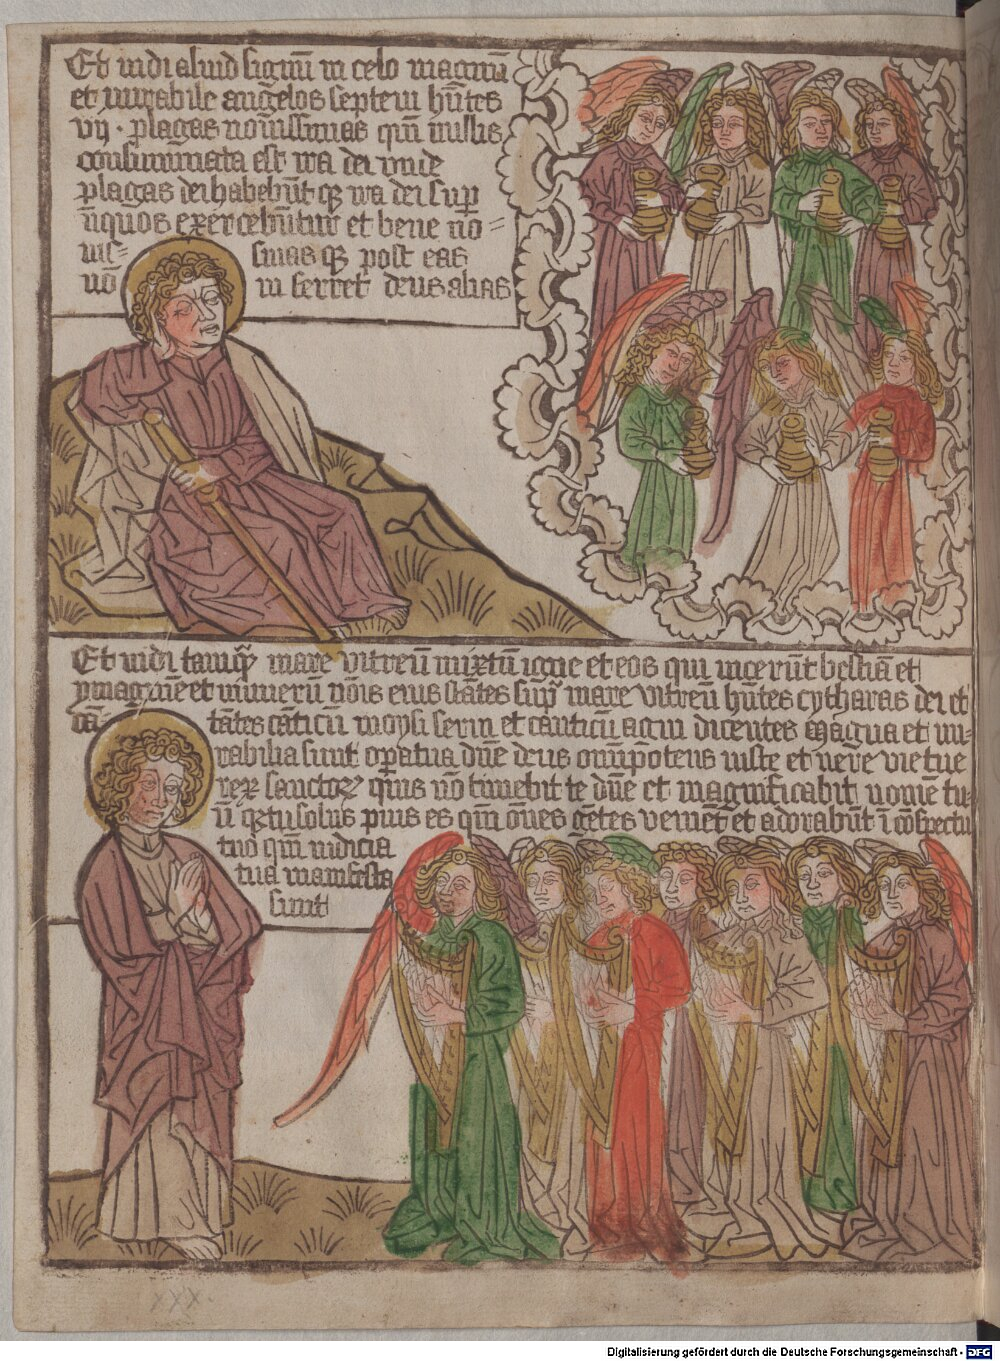 Et vidi aliud signū in celo magnū
et mirabile angelos septem hūtes
vij · plagas novissimas qm̄ in illis
consummata est ira dei unde
plagas dei habebūt qꝫ ira dei sup
exercebūtur et bene no=
vis= simas qꝫ post eas
nō in ferret deus alias
Et vidi tamqꝫ mare vitreū mixtū igne et eos qui vicerūt bestiā et
ymaginē et numerū nōis eius stātes supͥ mare vitreū hūtes cytharas dei et
cā= tātes cāticū moysi servi et canticū agni dicentes Magna et mi=
rabilia sunt opera tua dn̄e deus om̄ipotens iuste et vere vie tue
rex sanctoꝝ quis nō timebit te dn̄e et magnificabit nomē tu
ū qꝫ tu solus pius es qm̄ om̄es gētes veniēt et adorabūt ī cōspectu
tuo qm̄ iudicia
tua manifesta
sunt
xxx.
Digitalisierung gefördert durch die Deutsche Forschungsgemeinschaft - DFG